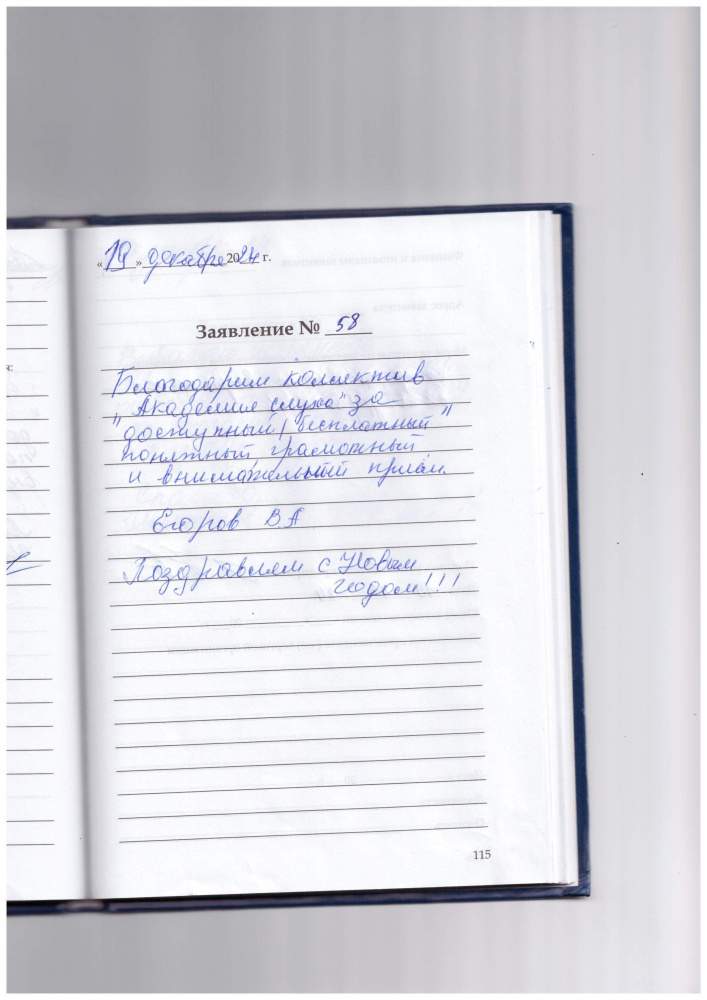 «19» декабря 2024 г.
Заявление № 58
Благодарим коллектив
"Академия слуха" за
"доступный, бесплатный"
понятный грамотный
и внимательный приём.
Егоров ВА
Поздравляем с Новым
годом!!!
115